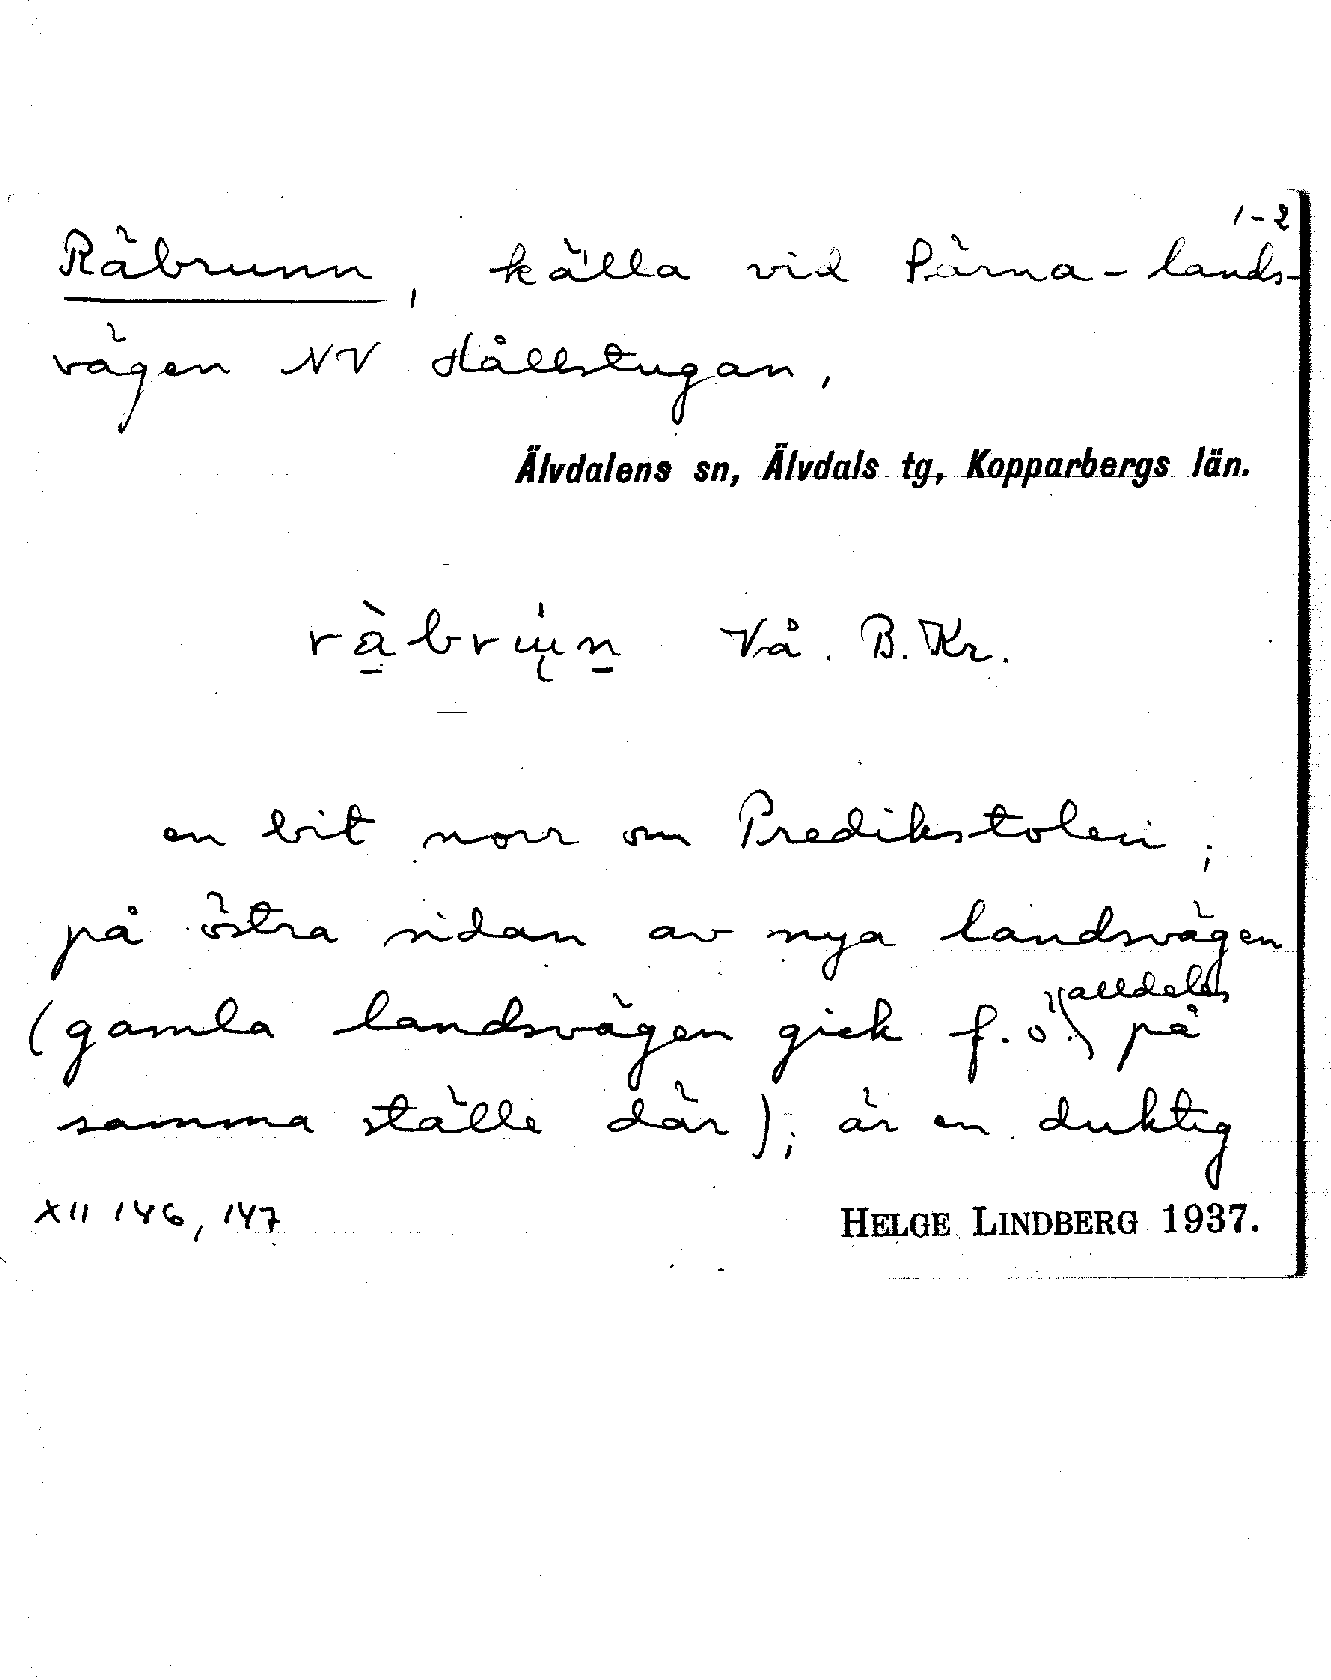 1-2
Räbrunn, källa vid Särna-lands-
vägen NV Hållstugan,
Älvdalens sn, Älvdals tg, Kopparbergs län.
Vå. B. Kr.
en bit norr om Predikstolen;
på östra sidan av nya landsvägen
alldeles
(gamla landsvägen gick f.ö. på
samma ställe där); är en duktig
XII 146, 147
HELGE LINDBERG 1937.